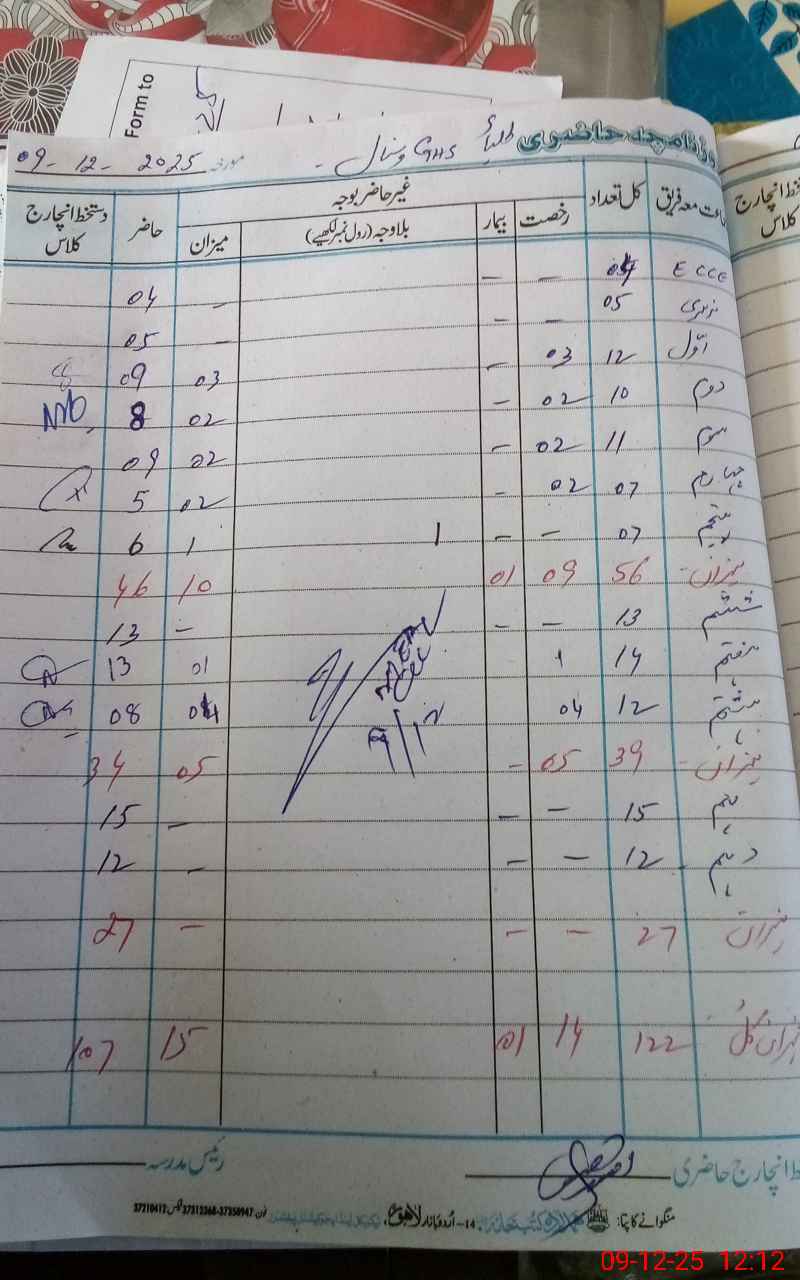 Form to
روزنامچہ حاضری طلباء GHS وسنال مورخہ 09-12-2025
جماعت معہ فریق کل تعداد غیر حاضر بوجہ حاضر دستخط انچارج کلاس
رخصت بیمار بلاوجہ (رول نمبر لکھیے) میزان
ECCE 04 — — - 04
نرسری 05 — — - 05
اوّل 12 03 — 03 09
دوم 10 02 - 02 8
سوم 11 02 - 02 09
چہارم 07 02 - 02 5
پنجم 07 — — 1 1 6
میزان - 56 09 01 10 46
ششم 13 — — - 13
ہفتم 14 1 01 13
ہشتم 12 04 04 08
میزان - 39 05 - 05 34
نہم 15 — — — 15
دہم 12 — — - 12
میزان 27 — — — 27
میزان کل 122 14 01 15 107
9/12
دستخط انچارج حاضری رئیس مدرسہ
منگوانے کا پتہ: 14-اُردو بازار لاہور۔ فون 37313368-37350947 فیکس 37210412
دستخط انچارج
کلاس
09-12-25 12:12